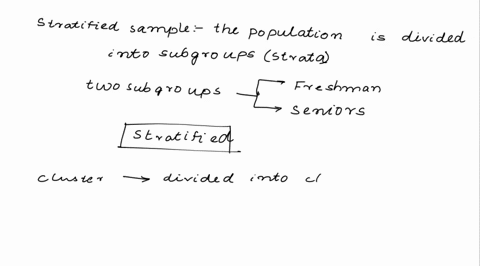 Stratified sample:- the population is divided
into subgroups (strata)
two subgroups → Freshman
→ seniors
Stratified
cluster → divided into cl